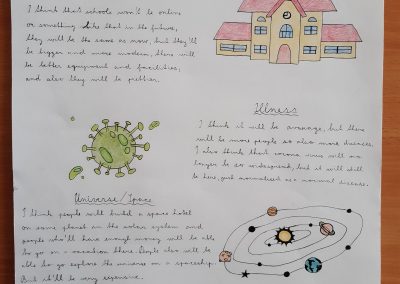 I think that schools won't be online
or something like that in the future,
they will be the same as now, but they'll
be bigger and more modern, there will
be better equipment and facilities,
and also they will be prettier.
Illness
I think it will be average, but there
will be more people so also more diseases.
I also think that corona virus will no
longer be so widespread, but it will still
be here, just normalized as a normal disease.
Universe/Space
I think people will build a space hotel
on some planet in the solar system and
people who'll have enough money will be able
to go on a vacation there. People also will be
able to go explore the universe on a spaceship.
But it'll be very expensive.